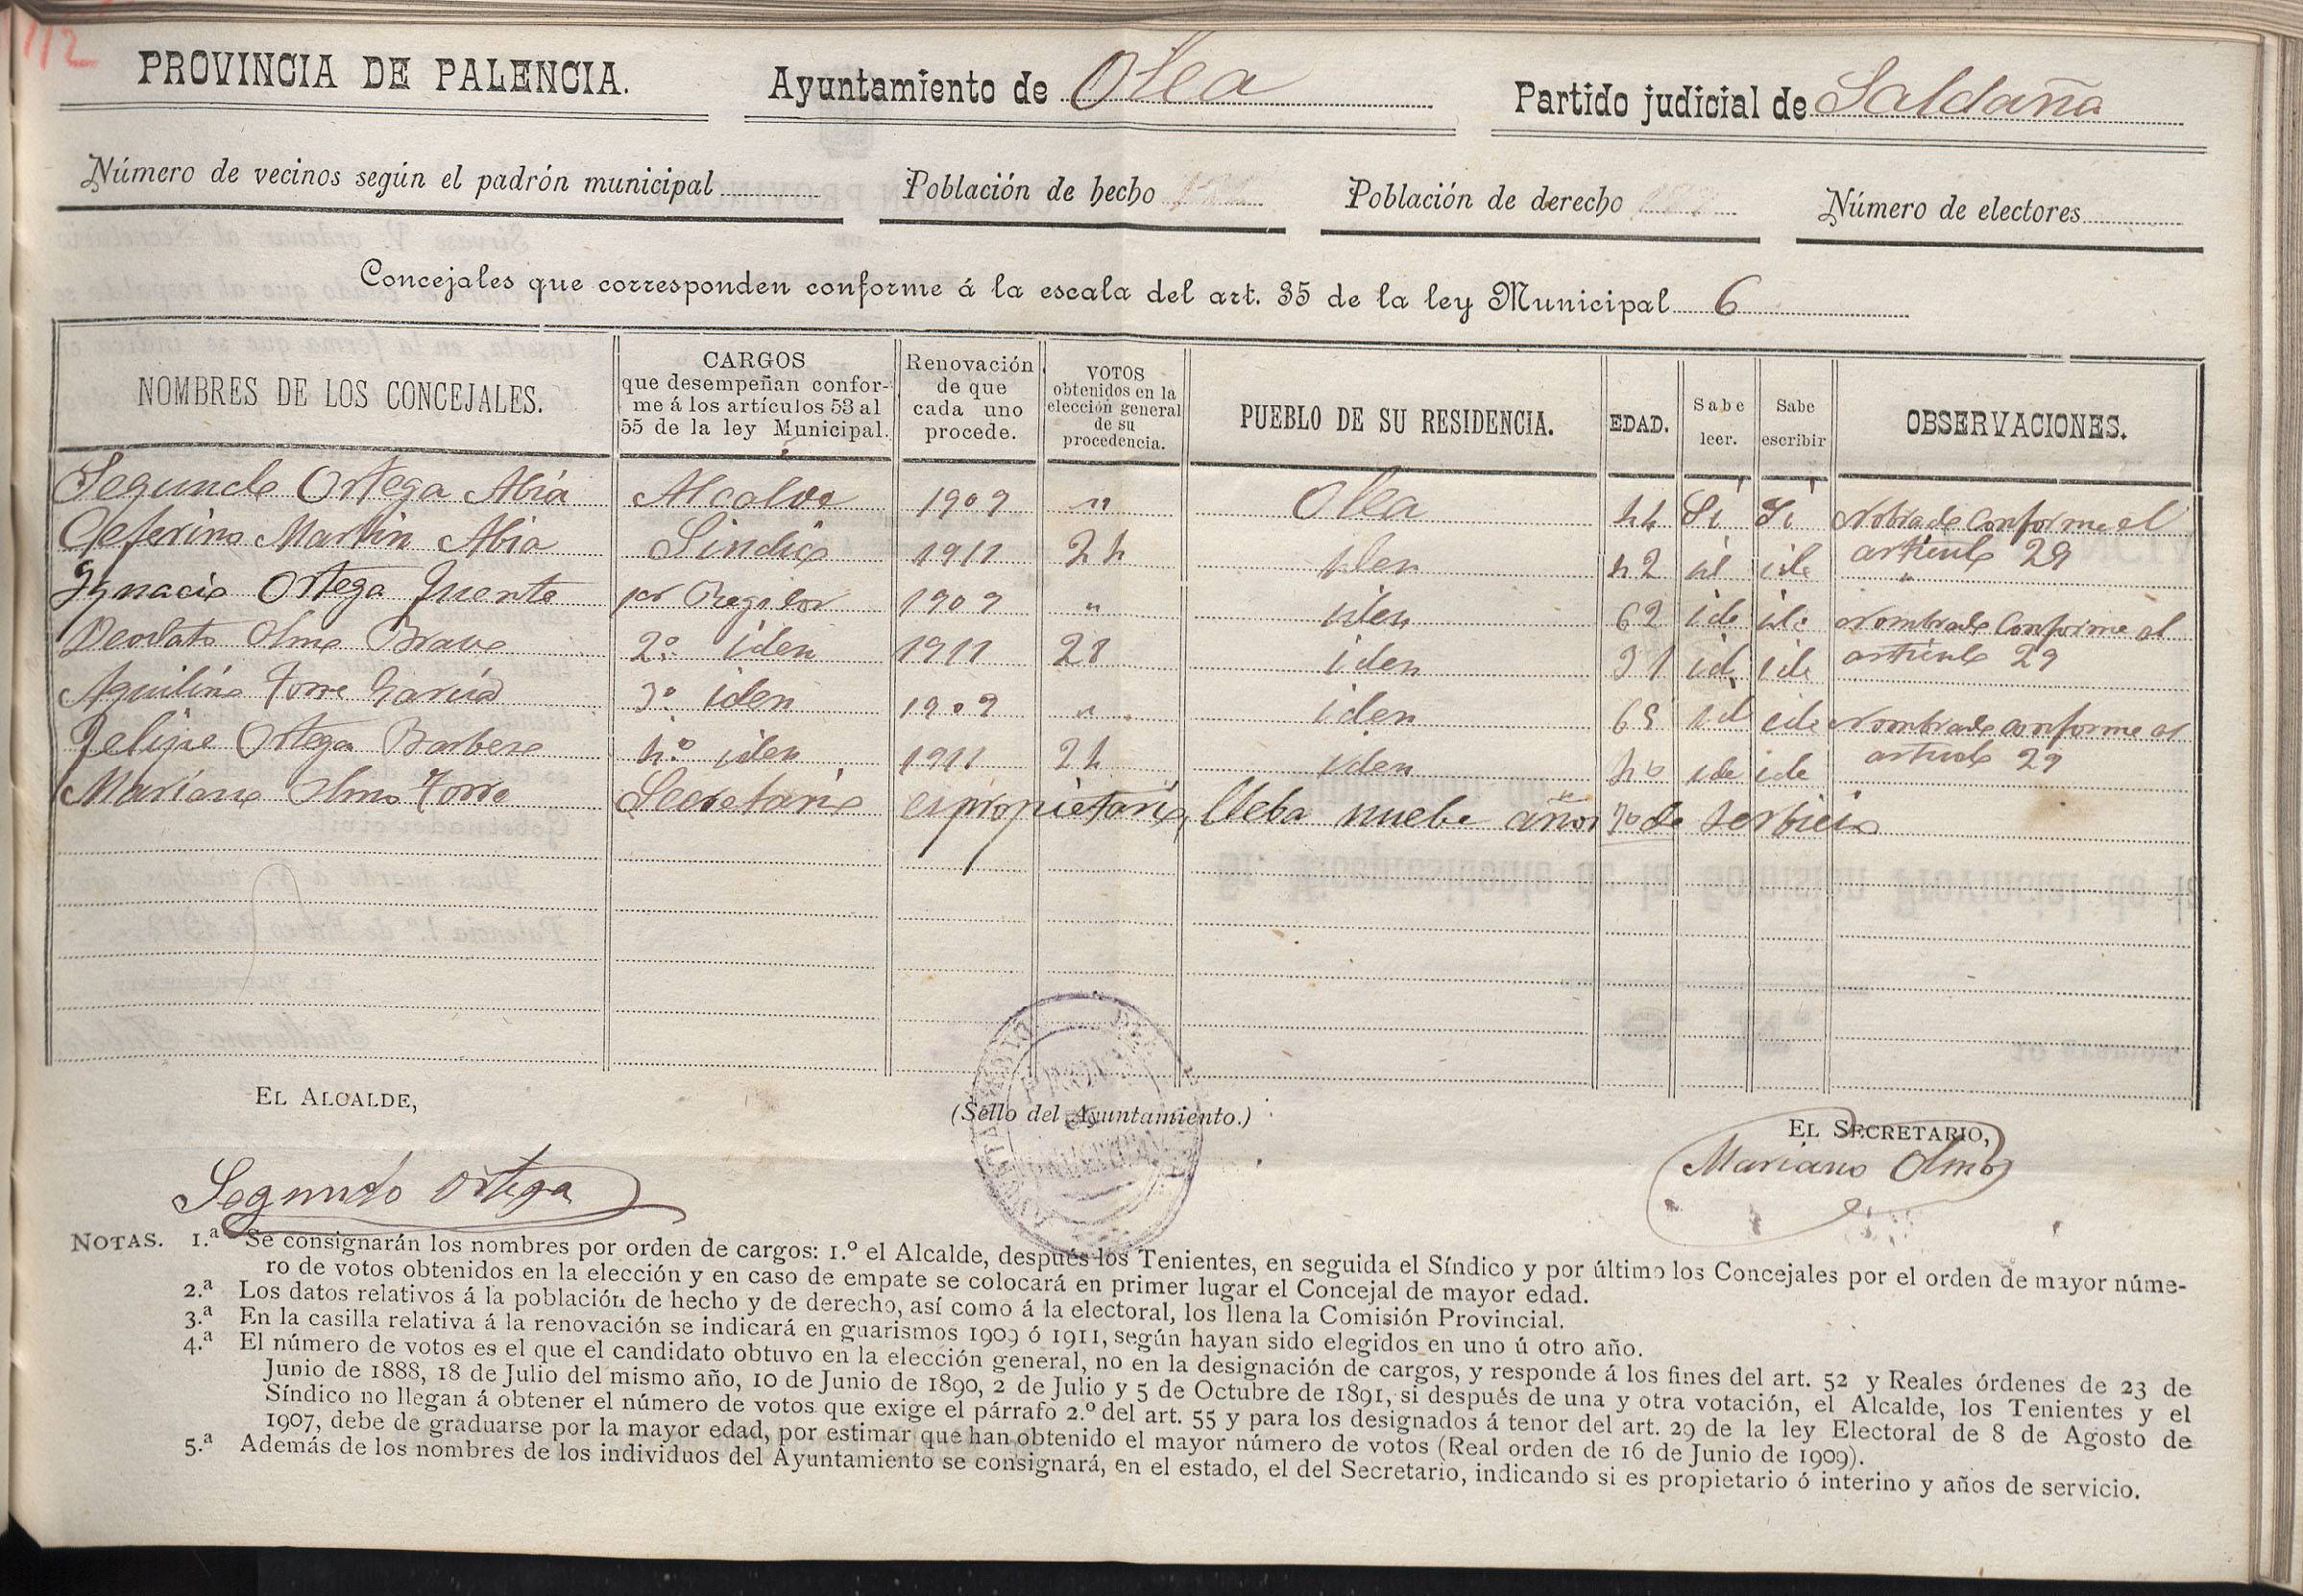 112
PROVINCIA DE PALENCIA. Ayuntamiento de Olea Partido judicial de Saldaña
Número de vecinos según el padrón municipal Población de hecho Población de derecho Número de electores
Concejales que corresponden conforme á la escala del art. 35 de la ley Municipal 6
NOMBRES DE LOS CONCEJALES. CARGOS que desempeñan confor- me á los artículos 53 al 55 de la ley Municipal. Renovación de que cada uno procede. VOTOS obtenidos en la elección general de su procedencia. PUEBLO DE SU RESIDENCIA. EDAD. Sabe leer. Sabe escribir OBSERVACIONES.
Segundo Ortega Abia Alcalde 1909 " Olea 44 Si Si Nobrado Conforme el
articulo 29
Ceferino Martin Abia Sindico 1911 24 iden 42 id ide "
Ignacio Ortega Fuente 1er Regidor 1909 " iden 62 ide ide Nombrado Conforme al
articulo 29
Deodato Olmo Bravo 2º iden 1911 28 iden 31 id ide
Aquilino Torre Garcia 3º iden 1909 " iden 65 id ide Nombrado conforme al
articulo 29
Felipe Ortega Barbera 4º iden 1911 24 iden 40 ide ide
Mariano Olmo Torre Secretario es propietario, lleba nuebe años de serbicio
EL ALCALDE, (Sello del Ayuntamiento.) EL SECRETARIO,
Segundo Ortega Mariano Olmo
NOTAS. 1.ª Se consignarán los nombres por orden de cargos: 1.º el Alcalde, después los Tenientes, en seguida el Síndico y por último los Concejales por el orden de mayor núme-
ro de votos obtenidos en la elección y en caso de empate se colocará en primer lugar el Concejal de mayor edad.
2.ª Los datos relativos á la población de hecho y de derecho, así como á la electoral, los llena la Comisión Provincial.
3.ª En la casilla relativa á la renovación se indicará en guarismos 1909 ó 1911, según hayan sido elegidos en uno ú otro año.
4.ª El número de votos es el que el candidato obtuvo en la elección general, no en la designación de cargos, y responde á los fines del art. 52 y Reales órdenes de 23 de
Junio de 1888, 18 de Julio del mismo año, 10 de Junio de 1890, 2 de Julio y 5 de Octubre de 1891, si después de una y otra votación, el Alcalde, los Tenientes y el
Síndico no llegan á obtener el número de votos que exige el párrafo 2.º del art. 55 y para los designados á tenor del art. 29 de la ley Electoral de 8 de Agosto de
1907, debe de graduarse por la mayor edad, por estimar que han obtenido el mayor número de votos (Real orden de 16 de Junio de 1909).
5.ª Además de los nombres de los individuos del Ayuntamiento se consignará, en el estado, el del Secretario, indicando si es propietario ó interino y años de servicio.